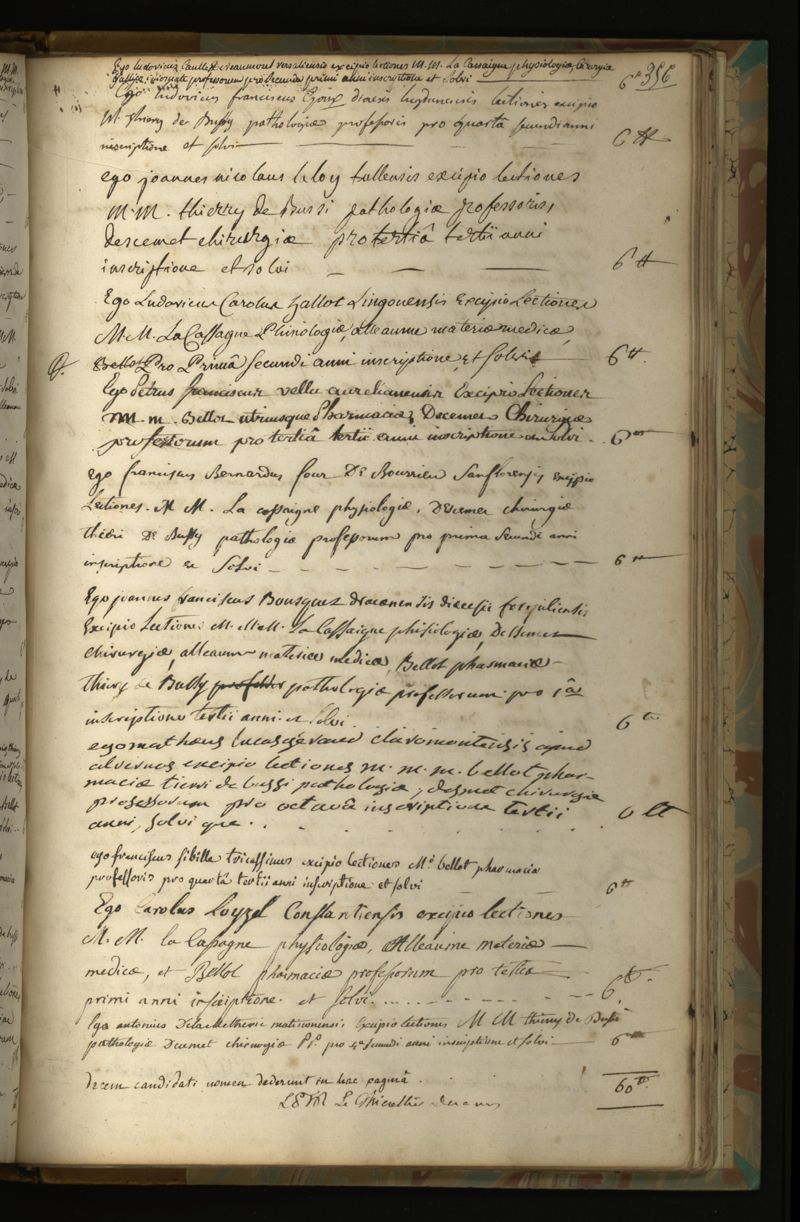 356
Ego ludovicus versaliensis excipio lectiones M. M. La Cassaigne physiologiæ, chirurgiæ
professorum pro secunda primi anni inscriptione et solvi 6#
Ego ludovicus franciscus diœcesis lugdunensis lectiones excipio
M. thierry de Bussy pathologiæ professoris pro quarta secundi anni
inscriptione et solvi 6#
ego joannes nicolaus leloy tullensis excipio lectiones
M. M. thierry de Bussi pathologiæ professoris,
descemet chirurgiæ pro tertiâ tertii anni
inscriptione et solvi 6#
Ego Ludovicus Carolus Gallot Lingonensis Excipio Lectiones
M. M. La Cassagne Phisiologiæ, alleaume materiæ medicæ,
Bellot Pro Primâ secundi anni inscriptione, et solvi 6#
Ego Petrus franciscus vellu aurelianensis Excipio Lectiones
M. m. Bellot utriusque Pharmaciæ, Decemet Chirurgiæ
professorum pro tertiâ tertii anni inscriptione et solvi. 6#
ego franciscus Bernardus four De Bourrieu Sanflorensis excipio
Lectiones. M M. La cassaigne physiologiæ, Descemet chirurgiæ
thieri De Bussy pathologiæ professorum pro prima secundi anni
inscriptione et Solvi 6#
Ego joannes franciscus Bousquet dracenensis diœcesis forojuliensis
Excipio Lectiones M. M. M. La Cassaigne phisiologiæ, Dessemet
chirurgiæ, alleaume materiæ medicæ, Bellot pharmaciæ
thiery de Bussy pathologiæ professorum pro 1â
inscriptione tertii anni et solvi 6#
ego matheus lucas gerard claromontensis apud
alvernos excipio lectiones m. m. m. bellot phar-
maciæ tierri de bussi pathologiæ, desmet chirurgiæ
professorum pro octavâ inscriptione tertii
anni, solvi que. 6#
ego franciscus sibille tricassinus excipio lectiones Mi. bellot pharmaciæ
professoris pro quartâ tertii anni inscriptione et solvi 6#
Ego Carolus Loyzel Constantiensis excipio lectiones
M. M. la Cassagne physiologiæ, Alleaume materiæ
medicæ, et Bellot pharmaciæ professorum pro tertia
primi anni inscriptione. et solvi. 6#
Ego antonius Delametherie matisconensis excipio lectiones M M thierry de Bussi
pathologiæ Decemet chirurgiæ PP. pro 4a secundi anni inscriptione et solvi 6#
decem candidati nomen dederunt in hac paginâ. 60#
Le Thieullier decanus